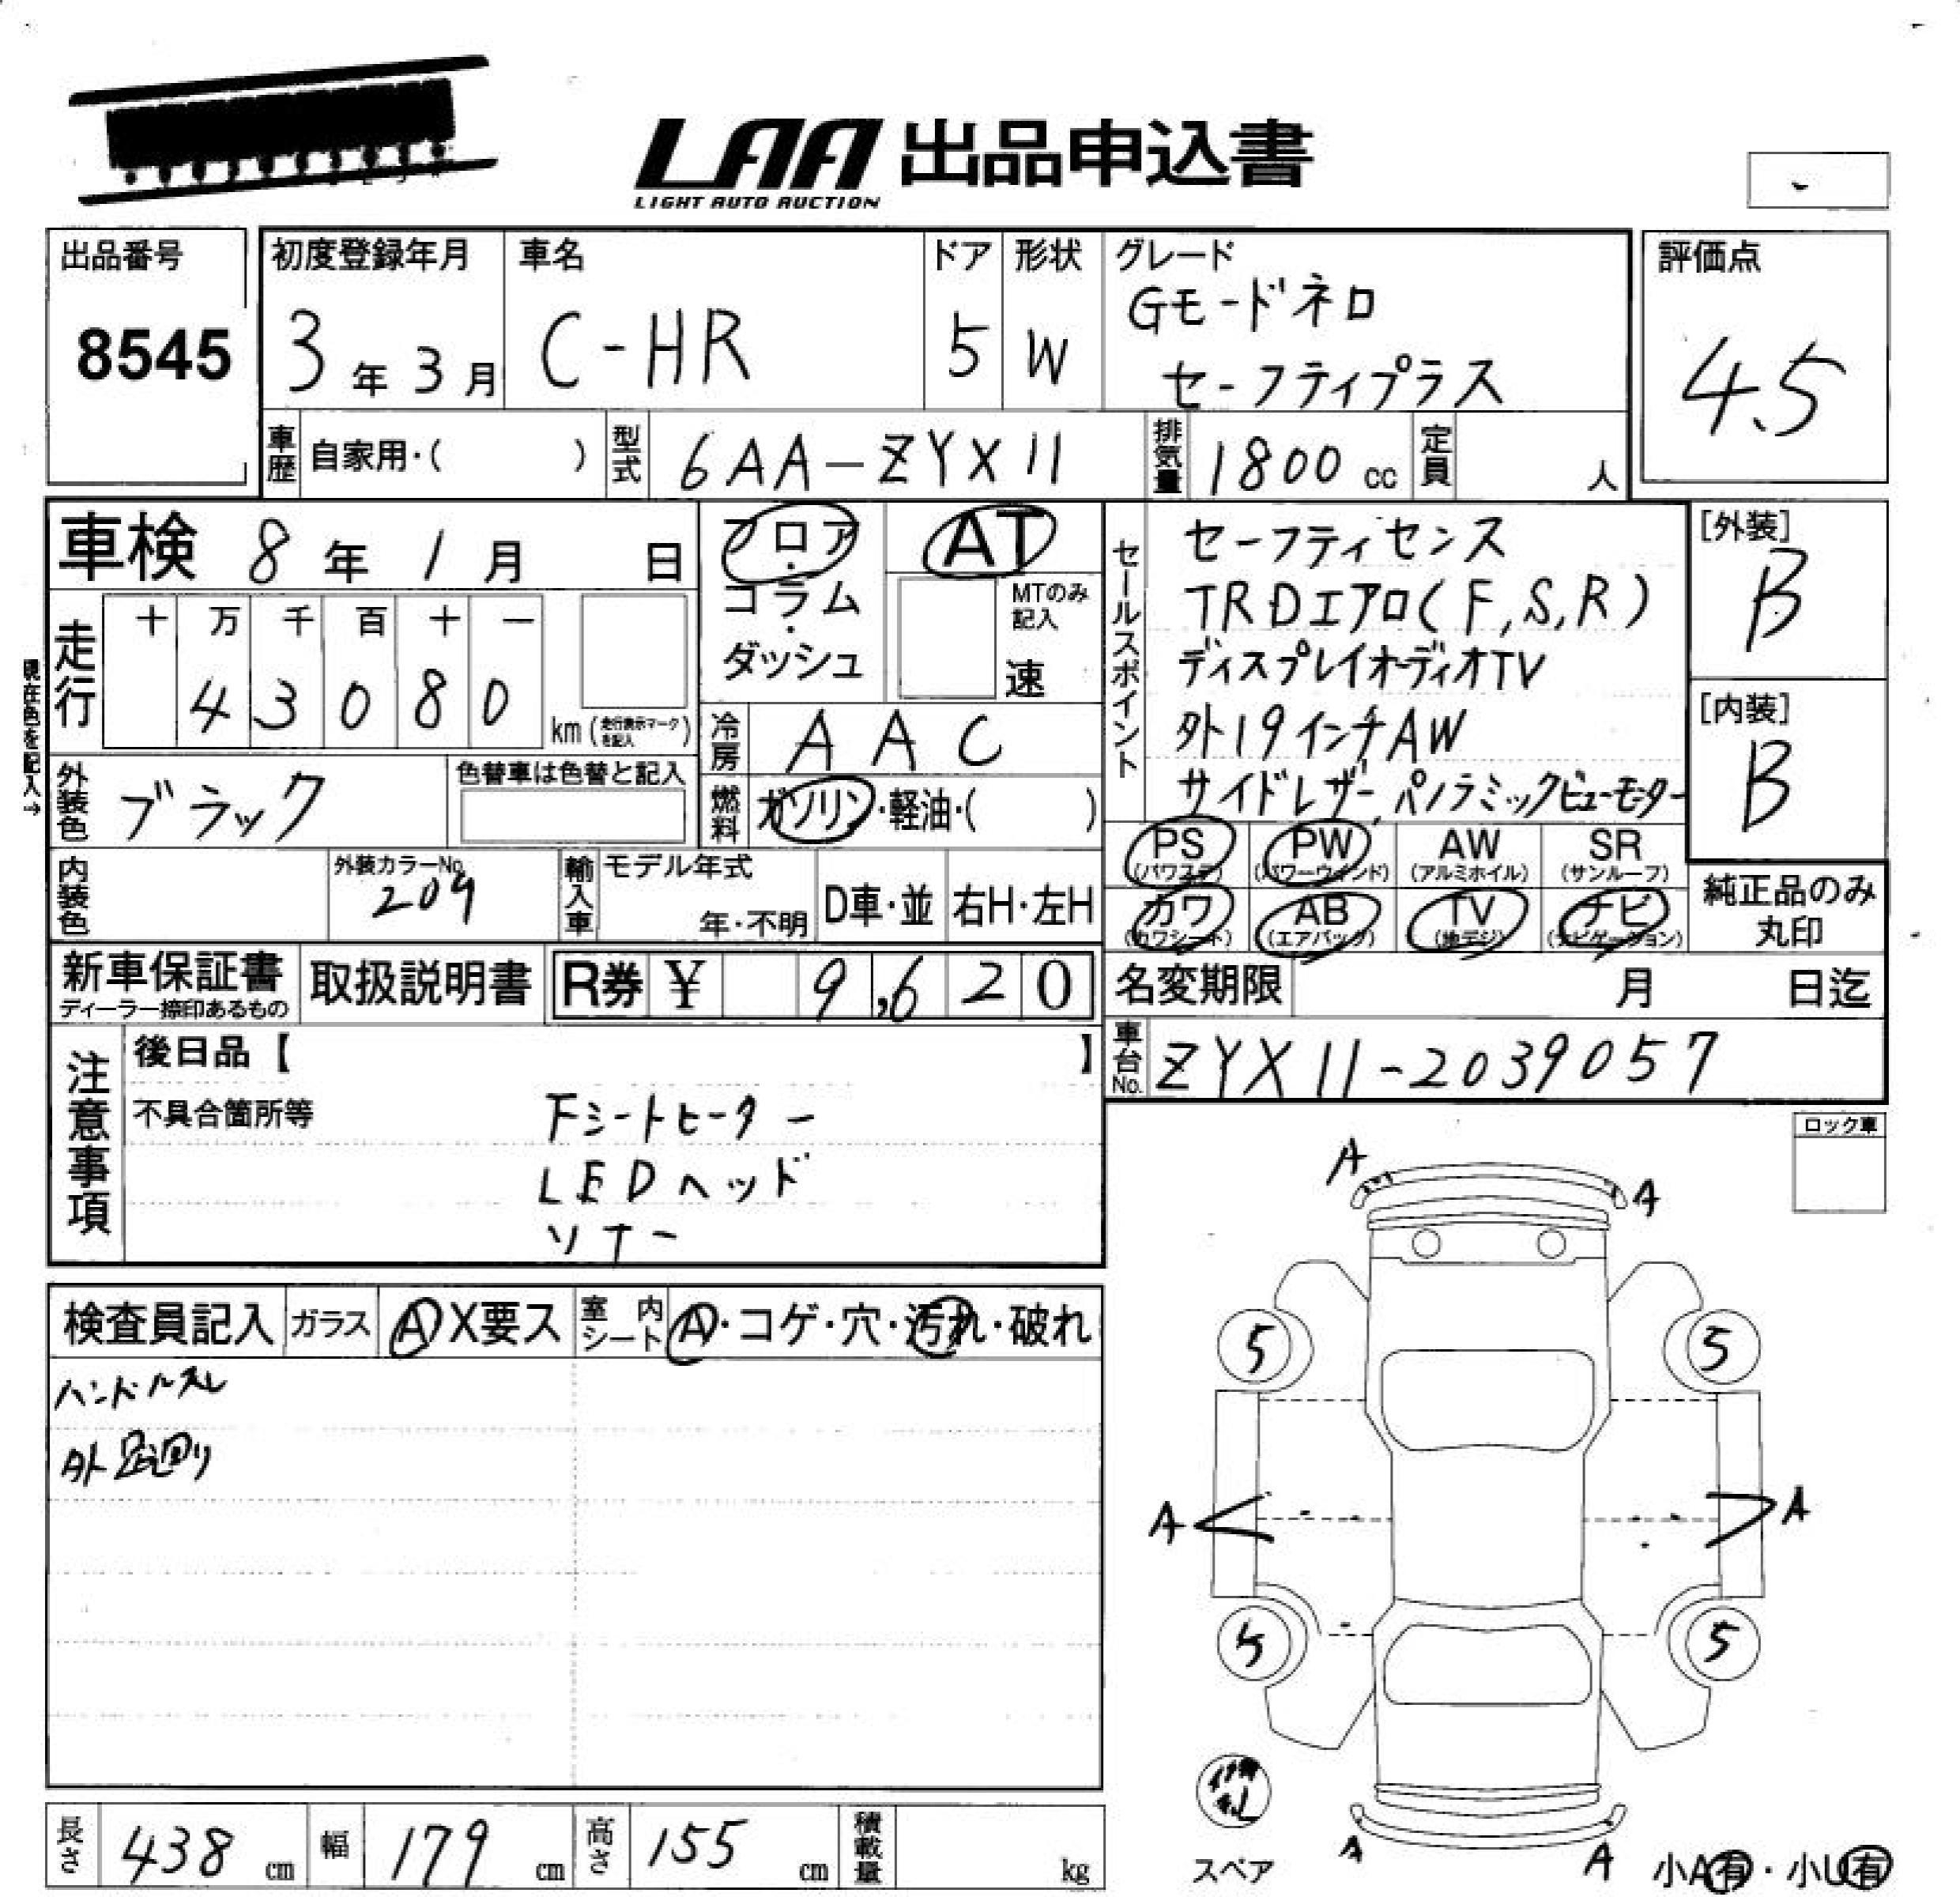 LAA 出品申込書
LIGHT AUTO AUCTION
出品番号
8545
初度登録年月
3年3月
車名
C-HR
ドア
5
形状
W
グレード
Gモードネロ
セーフティプラス
評価点
4.5
車歴 自家用・( )
型式 6AA-ZYX11
排気量 1800 cc
定員 人
車検 8年1月 日
フロア・コラム・ダッシュ
AT
MTのみ記入
速
走行
十 万 千 百 十 一
4 3 0 8 0
km(走行表示マークを記入)
現在色を記入→
冷房 AAC
外装色 ブラック
色替車は色替と記入
燃料 ガソリン・軽油・( )
内装色
外装カラーNo.
209
輸入車
モデル年式
年・不明
D車・並
右H・左H
セールスポイント
セーフティセンス
TRDエアロ(F,S,R)
ディスプレイオーディオTV
外19インチAW
サイドレザー,パノラミックビューモーター
[外装]
B
[内装]
B
PS PW AW SR
(パワステ) (パワーウインド) (アルミホイル) (サンルーフ)
カワ AB TV ナビ
(カワシート) (エアバック) (地デジ) (ナビゲーション)
純正品のみ
丸印
新車保証書
ディーラー捺印あるもの
取扱説明書
R券 ¥ 9,620
名変期限 月 日迄
車台No. ZYX11-2039057
注意事項
後日品【 】
不具合箇所等
Fシートヒーター
LEDヘッド
ソナー
ロック車
検査員記入
ガラス
A X要ス
室内シート
A・コゲ・穴・汚れ・破れ
ハンドルスレ
外 足廻り
A A
5 5
A A
5 5
A A
スペア
小A有・小U有
長さ 438 cm
幅 179 cm
高さ 155 cm
積載量 kg